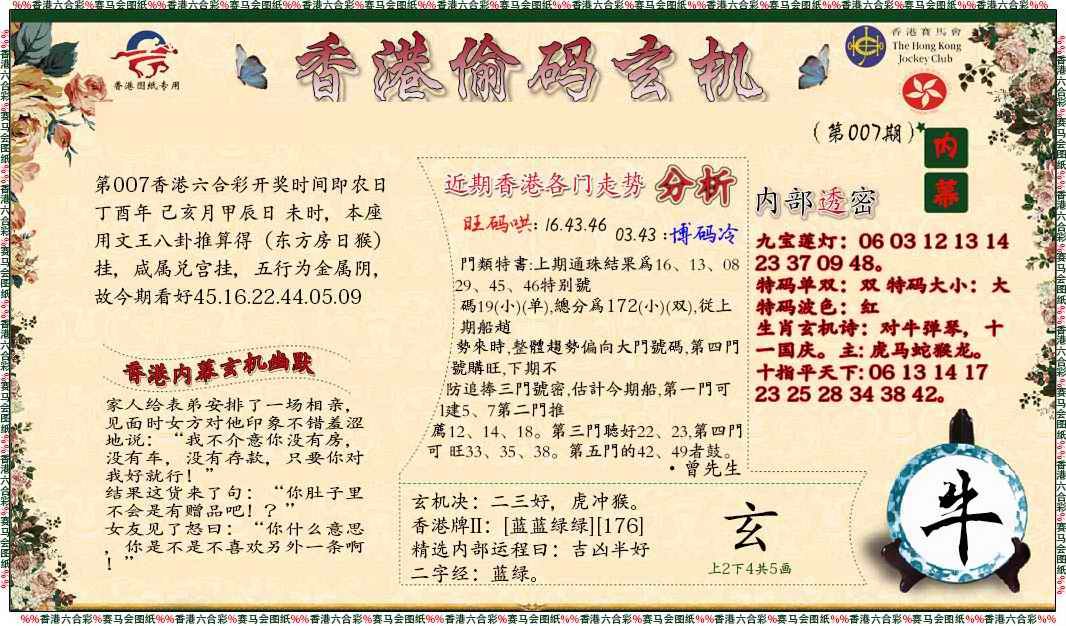 %%香港六合彩%赛马会图纸%%香港六合彩%赛马会图纸%%香港六合彩%赛马会图纸%%香港六合彩%赛马会图纸%%香港六合彩%赛马会图纸%%香港六合彩%%
香港图纸专用
香港偷码玄机
香港賽馬會
The Hong Kong
Jockey Club
(第007期)
内
幕
第007香港六合彩开奖时间即农日
丁酉年 己亥月甲辰日 未时，本座
用文王八卦推算得（东方房日猴）
挂，咸属兑宫挂，五行为金属阴，
故今期看好45.16.22.44.05.09
香港内幕玄机幽默
家人给表弟安排了一场相亲，
见面时女方对他印象不错羞涩
地说：“我不介意你没有房，
没有车，没有存款，只要你对
我好就行！”
结果这货来了句：“你肚子里
不会是有赠品吧！？”
女友见了怒曰：“你什么意思
，你是不是不喜欢另外一条啊
！”
近期香港各门走势 分析
旺码哄: 16.43.46
03.43 :博码冷
門類特書:上期通珠結果爲16、13、08
29、45、46特别號
碼19(小)(单),總分爲172(小)(双),從上
期船趙
勢來時,整體趨勢偏向大門號碼,第四門
號購旺,下期不
防追捧三門號密,估计今期船,第一門可
1建5、7第二門推
薦12、14、18。第三門聴好22、23,第四門
可 旺33、35、38。第五門的42、49者鼓。
・曾先生
内部透密
九宝莲灯：06 03 12 13 14
23 37 09 48。
特码单双：双 特码大小：大
特码波色：红
生肖玄机诗：对牛弹琴，十
一国庆。主: 虎马蛇猴龙。
十指平天下: 06 13 14 17
23 25 28 34 38 42。
玄机决：二三好，虎冲猴。
香港牌II：[蓝蓝绿绿][176]
精选内部运程曰：吉凶半好
二字经：蓝绿。
玄
上2下4共5画
牛
%%香港六合彩%赛马会图纸%%香港六合彩%赛马会图纸%%香港六合彩%赛马会图纸%%香港六合彩%赛马会图纸%%香港六合彩%赛马会图纸%%香港六合彩%%